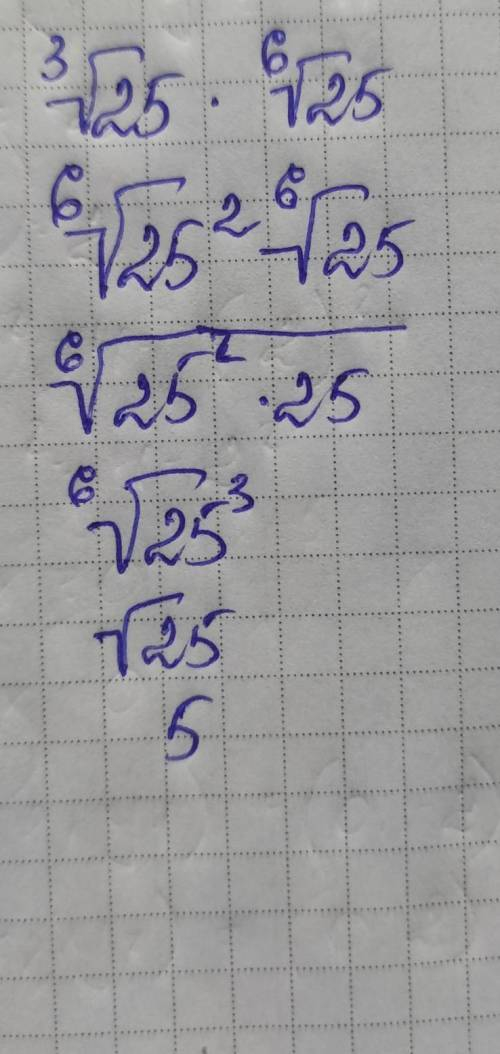 ∛25 · ⁶√25
⁶√25² ⁶√25
⁶√25² · 25
⁶√25³
√25
5